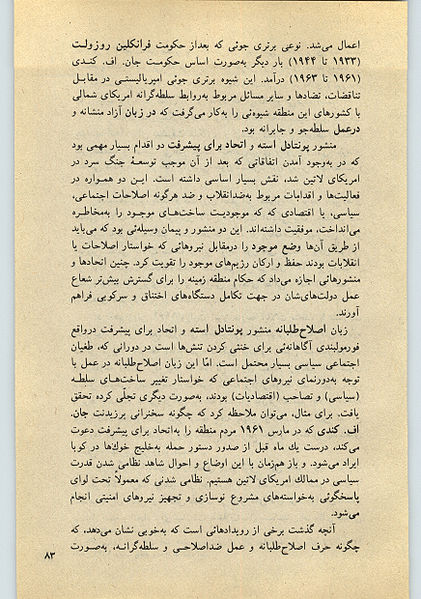 اعمال می‌شد. نوعی برتری جوئی که بعداز حکومت فرانکلین روزولت
(۱۹۳۳ تا ۱۹۴۴) بار دیگر به‌صورت اساس حکومت جان. اف. کندی
(۱۹۶۱ تا ۱۹۶۳) درآمد. این شیوه برتری جوئی امپریالیستی در مقابل
تناقضات، تضادها و سایر مسائل مربوط به‌روابط سلطه‌گرانه امریکای شمالی
با کشورهای این منطقه شیوه‌ئی را به‌کار می‌گرفت که در زبان آزاد منشانه و
درعمل سلطه‌جو و جابرانه بود.
منشور پونتادل استه و اتحاد برای پیشرفت دو اقدام بسیار مهمی بود
که در به‌وجود آمدن اتفاقاتی که بعد از آن موجب توسعهٔ جنگ سرد در
امریکای لاتین شد، نقش بسیار اساسی داشته است. این دو همواره در
فعالیت‌ها و اقدامات مربوط به‌ضدانقلاب و ضد هرگونه اصلاحات اجتماعی،
سیاسی، یا اقتصادی که که موجودیت ساخت‌های موجود را به‌مخاطره
می‌انداخت، موفقیت داشته‌اند. این دو منشور و پیمان وسیله‌ئی بود که می‌باید
از طریق آن‌ها وضع موجود را درمقابل نیروهائی که خواستار اصلاحات یا
انقلابات بودند حفظ و ارکان رژیم‌های موجود را تقویت کرد. چنین اتحادها و
منشورهائی اجازه می‌داد که حکام منطقه زمینه را برای گسترش بیش‌تر شعاع
عمل دولت‌های‌شان در جهت تکامل دستگاه‌های اختناق و سرکوبی فراهم
آورند.
زبان اصلاح‌طلبانه منشور پونتادل استه و اتحاد برای پیشرفت درواقع
فورمولبندی آگاهانه‌ئی برای خنثی کردن تنش‌ها است در دورانی که، طغیان
اجتماعی سیاسی بسیار محتمل است. امّا این زبان اصلاح‌طلبانه در عمل با
توجه به‌دورنمای نیروهای اجتماعی که خواستار تغییر ساخت‌های سلطه
(سیاسی) و تصاحب (اقتصادیات) بودند، به‌صورت دیگری تجلّی کرده تحقق
یافت. برای مثال، می‌توان ملاحظه کرد که چگونه سخنرانی پرزیدنت جان.
اف. کندی که در مارس ۱۹۶۱ مردم منطقه را به‌اتحاد برای پیشرفت دعوت
می‌کند، درست یك ماه قبل از صدور دستور حمله به‌خلیج خوك‌ها در کوبا
ایراد می‌شود. و باز همزمان با این اوضاع و احوال شاهد نظامی شدن قدرت
سیاسی در ممالك امریکای لاتین هستیم. نظامی شدنی که معمولاً تحت لوای
پاسخگوئی به‌خواسته‌های مشروع نوسازی و تجهیز نیروهای امنیتی انجام
می‌شود.
آنچه گذشت برخی از رویدادهائی است که به‌خوبی نشان می‌دهد، که
چگونه حرف اصلاح‌طلبانه و عمل ضداصلاحی و سلطه‌گرانه، به‌صورت
۸۳